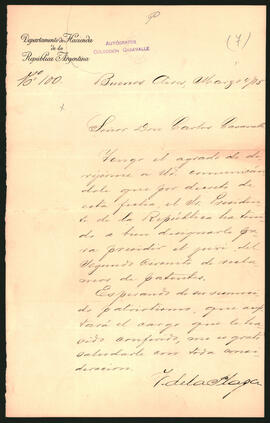 (7)
Departamento de Hacienda
de la
República Argentina
AUTÓGRAFOS
COLECCIÓN CASAVALLE
Nº 100.
Buenos Aires, Marzo
Señor Don Carlos Casavalle
Tengo el agrado de di-
rijirme a Ud. comunicán-
dole que por decreto de
esta fecha, el Sr. Presiden-
te de la República ha teni-
do a bien designarlo pa-
ra presidir el juri del
Segundo
mos de patentes.
Esperando de su recono-
cido patriotismo, que acep-
tará el cargo que le ha
sido conferido, me es grato
saludarle con toda consi-
deracion.
V. de la Plaza